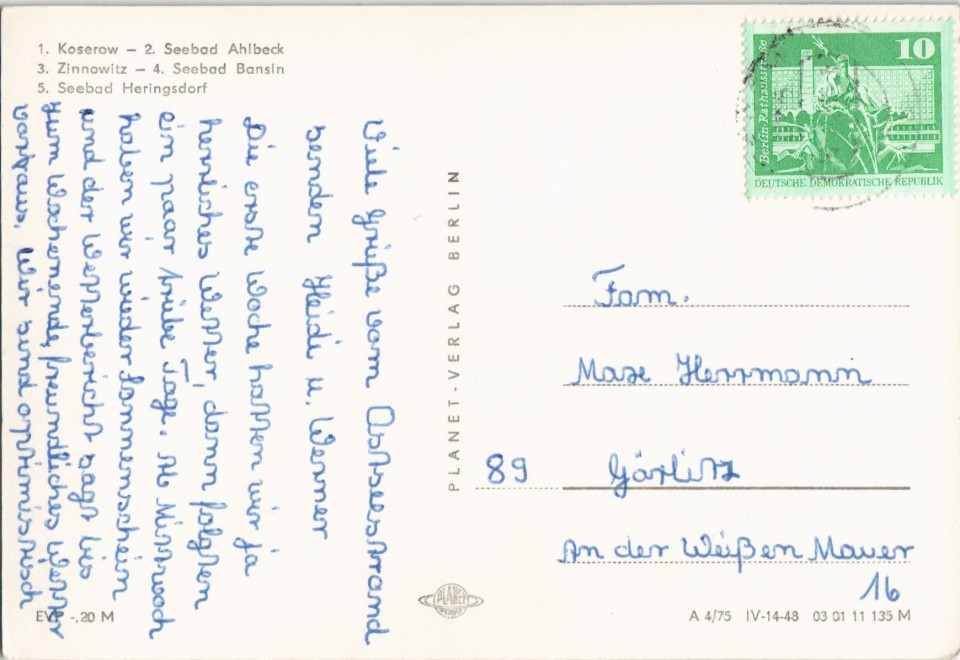 1. Koserow – 2. Seebad Ahlbeck
3. Zinnowitz – 4. Seebad Bansin
5. Seebad Heringsdorf
Viele Grüße vom Ostseestrand
senden Heidi u. Werner
Die erste Woche hatten wir ja
herrliches Wetter, dann folgten
ein paar trübe Tage. Ab Mittwoch
haben wir wieder Sonnenschein
und der Wetterbericht sagt bis
zum Wochenende freundliches Wetter
voraus. Wir sind optimistisch
EVP -,20 M
PLANET-VERLAG BERLIN
PLANET
10
Berlin-Rathausstraße
DEUTSCHE DEMOKRATISCHE REPUBLIK
Fam.
Max Herrmann
89 Görlitz
An der Weißen Mauer
16
A 4/75 IV-14-48 03 01 11 135 M